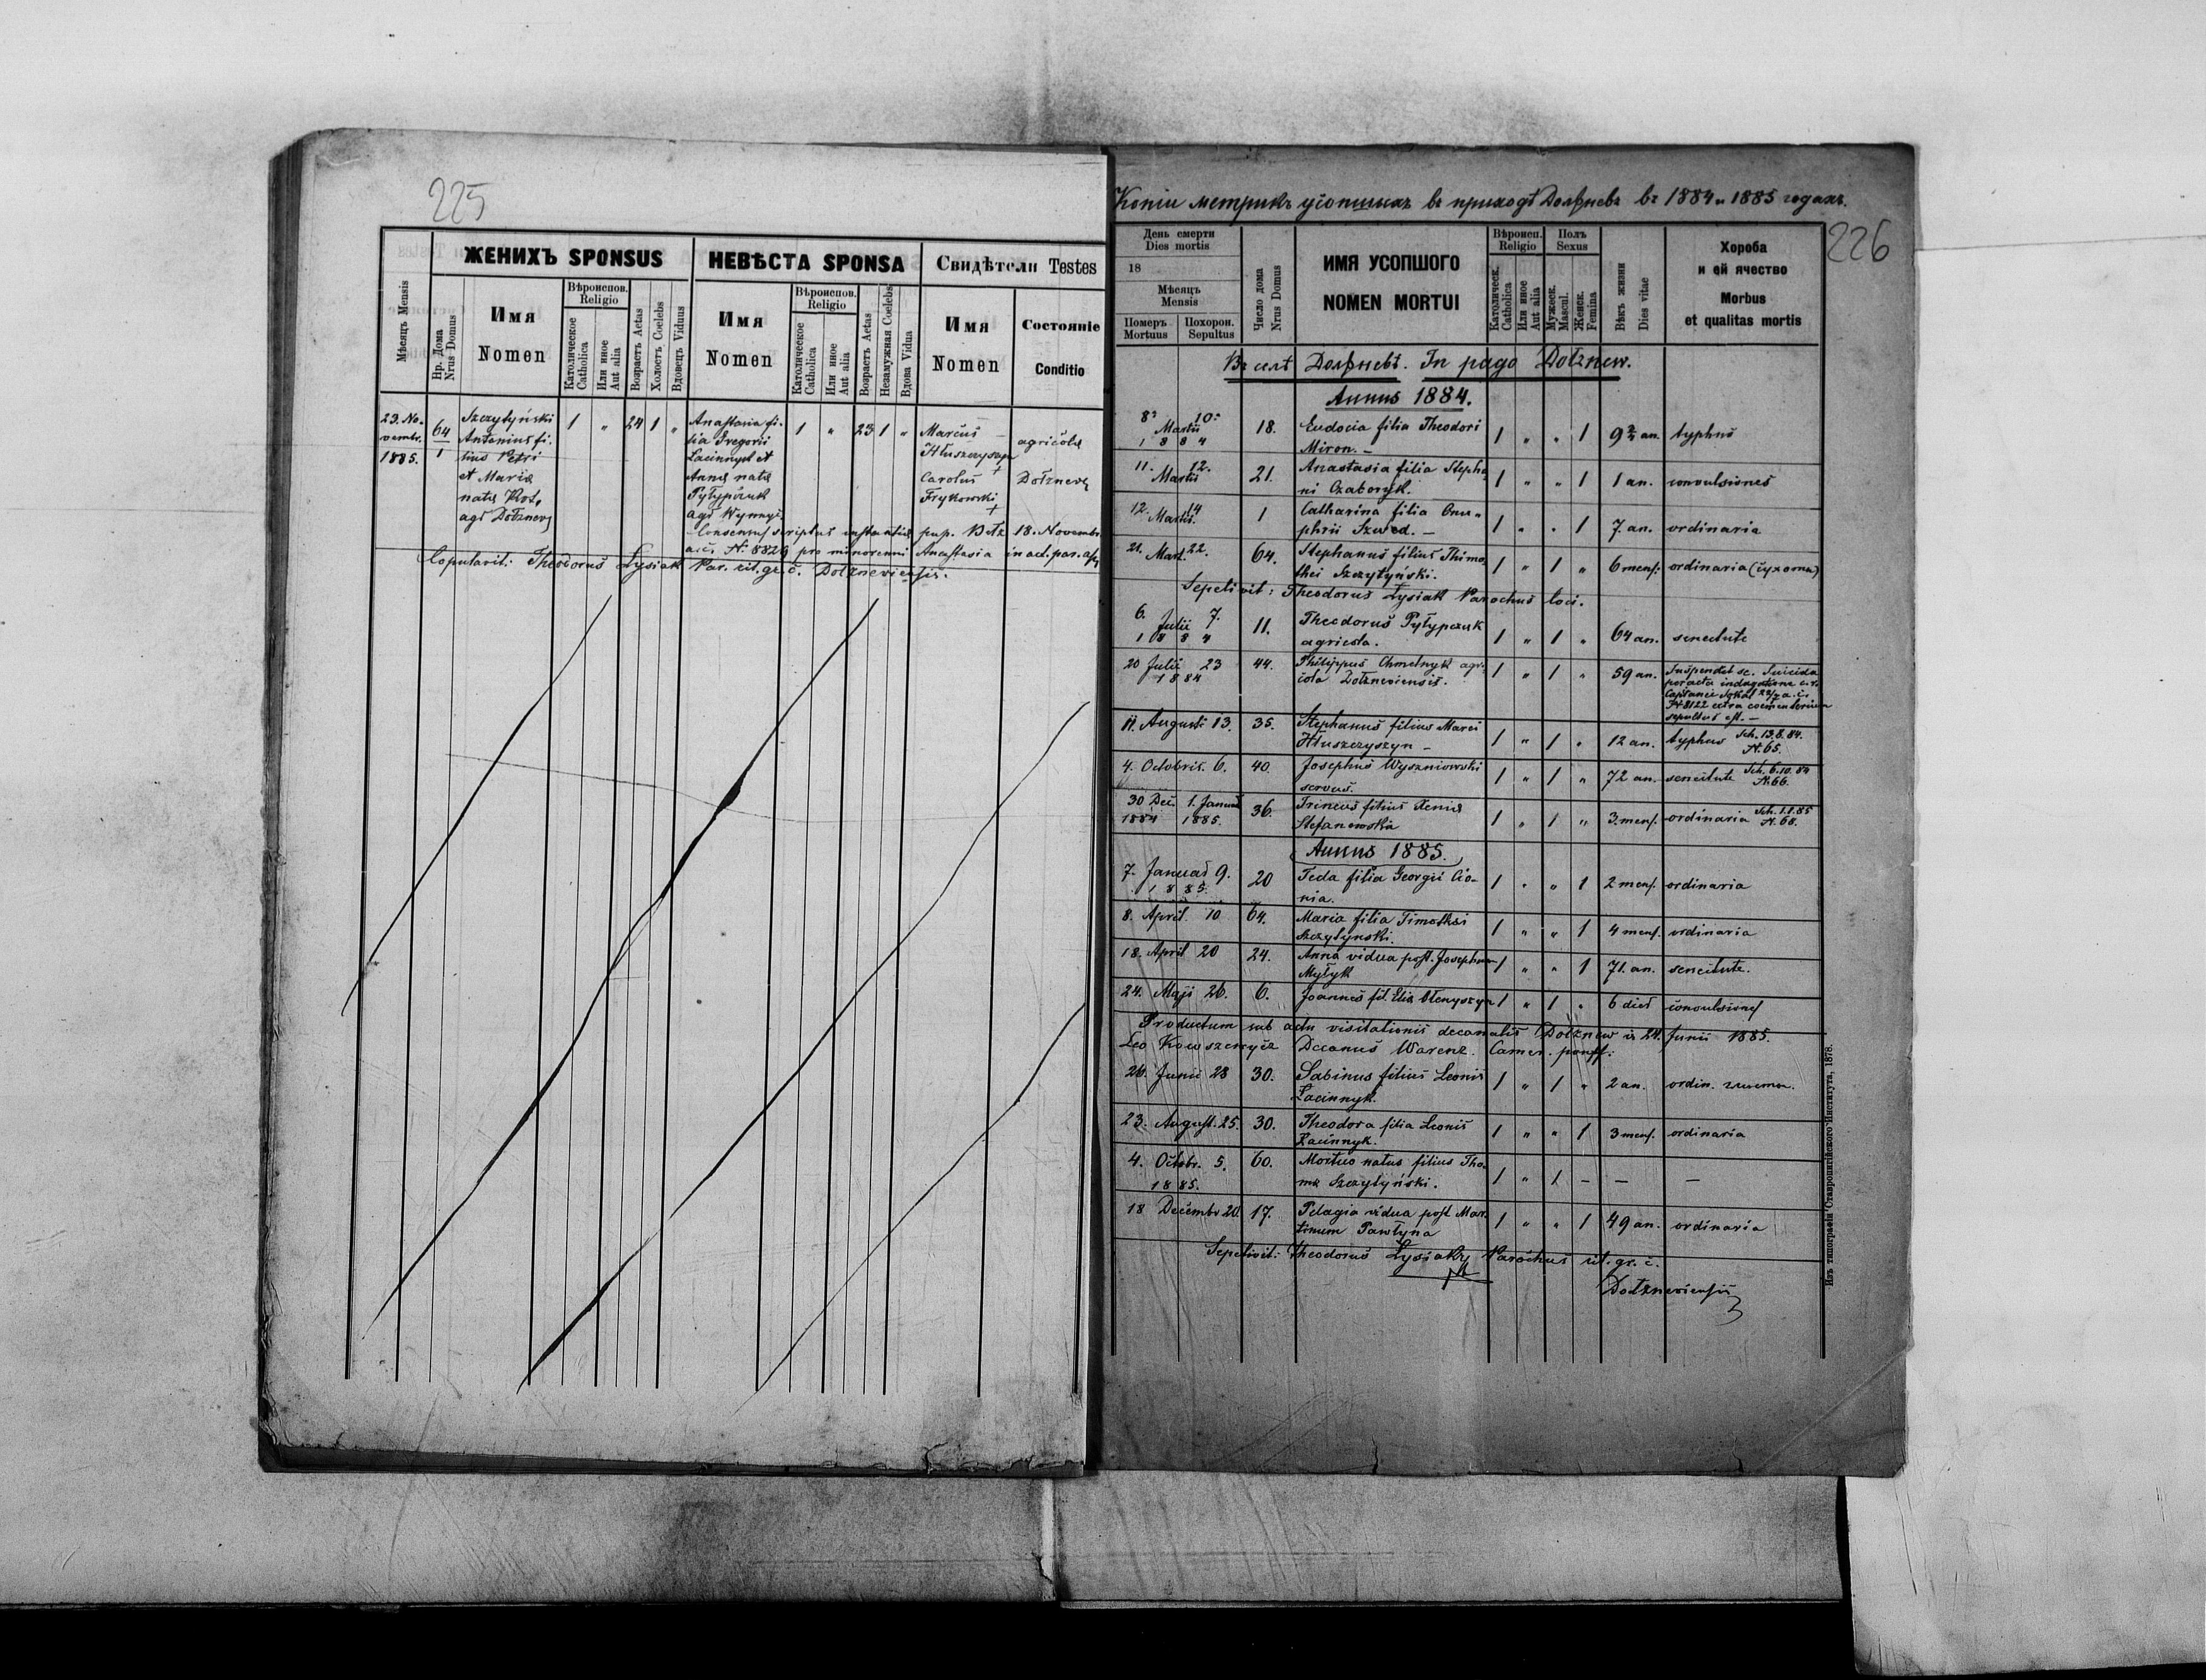 225
ЖЕНИХЪ SPONSUS
НЕВѢСТА SPONSA
Свидѣтели Testes
Мѣсяцъ Mensis
Нр. Дома Nrus Domus
Имя
Nomen
Вѣроиспов. Religio
Католическое Catholica
Или иное Aut alia
Возрастъ Aetas
Холостъ Coelebs
Вдовецъ Viduus
Имя
Nomen
Вѣроиспов. Religio
Католическое Catholica
Или иное Aut alia
Возрастъ Aetas
Незамужная Coelebs
Вдова Vidua
Имя
Nomen
Состояніе
Conditio
23. No-
vembr.
1885.
64
1
Szczytyński
Antonius fi-
lius Petri
et Maria
nata Kot,
agr Dołżnev
1 " 24 1 "
Anastasia fi-
lia Gregorii
Łacinnyk et
Anna nata
Pyłypczuk
1 " 23 1 "
Marcus
Hłuszczyszyn
+
Carolus
Frykowski
+
agricola
Dołżnev
Consensus scriptus instantia pup. Bełz 18. Novembr.
a.c. N. 8829 pro minorenni Anastasia in act. par. asf
Copulavit: Theodorus Łysiak Par. rit. gr. c. Dołzneviensis.
Копіи метрикъ усопшихъ въ приходѣ Должневъ въ 1884 и 1885 годахъ.
226
День смерти
Dies mortis
18
Мѣсяцъ
Mensis
Померъ Mortuus
Похорон. Sepultus
Число дома Nrus Domus
ИМЯ УСОПШОГО
NOMEN MORTUI
Вѣроисп. Religio
Католическ. Catholica
Или иное Aut alia
Полъ Sexus
Мужеск. Mascul.
Женск. Femina
Вѣкъ жизни Dies vitae
Хороба
и ей ячество
Morbus
et qualitas mortis
Въ селѣ Должневѣ. In pago Dołżnew.
Annus 1884.
8 Martii 10 18. Eudocia filia Theodori 1 " " 1 typhus
1884 Miron. –
11. Martii 12. 21. Anastasia filia Stepha- 1 " " 1 1 an. convulsiones
ni Czaboryk.
12. Martii 14 1 Catharina filia Onu- 1 " " 1 7. an. ordinaria
phrii Szwed. –
21. Mart. 22. 64. Stephanus filius Thimo- 1 " 1 " 6 mens: ordinaria
thei Szczytyński.
Sepelivit: Theodorus Łysiak Parochus loci.
6. Julii 7. 11. Theodorus Pyłypczuk 1 " 1 " 64 an. senectute
1884 agricola.
20 Julii 23 44. Philippus Chmelnyk agri- 1 " 1 " 59 an. Suspendet sc. Suicida
1884 cola Dołzneviensis.
peracta indagatione c.r.
N 8122 extra coementerium
sepultus est. –
11. Augusti 13. 35. Stephanus filius Marci 1 " 1 " 12 an. typhus Sch. 13.8.84.
Hłuszczyszyn – N. 65.
4. Octobris. 6. 40. Josephus Wyszniowski 1 " 1 " 72 an. senectute Sch. 6.10.84
servus. N. 66.
30 Dec. 1. Januar 36. Irineus filius Xenia 1 " 1 " 3. mens. ordinaria Sch. 1.1.85
1884 1885. Stefanowska N. 68.
Annus 1885.
7. Januar 9. 20 Teda filia Georgii Cio- 1 " " 1 2 mens. ordinaria
1885. nia.
8. April. 10 64. Maria filia Timothei 1 " " 1 4 mens. ordinaria
Szczytynski.
18. April 20 24. Anna vidua post. Josephum 1 " " 1 71. an. senectute.
Mytyk
24. Maji 26. 6. Joannes fil. Elia Ołenyszyn 1 " 1 " 6 dies convulsiones
Productum sub actu visitationis decanalis Dołżnew is 24. Junii 1885.
Leo Decanus Warenz. Camer. pontf:
26. Junii 28 30. Sabinus filius Leonis 1 " 1 " 2 an. ordin.
Łacinnyk.
23. August. 25. 30. Theodora filia Leonis 1 " " 1 3 mens. ordinaria
Łacinnyk.
4. Octobr. 5. 60. Mortuo natus filius Tho- 1 " 1 – – –
1885. ma Szczytyński.
18 Decembr 20. 17. Pelagia vidua post Mar- 1 " " 1 49 an. ordinaria
tinum Pawłyna
Sepelivit: Theodorus Łysiak Parochus rit. gr. c.
Dołzneviensis
Изъ типографіи Ставропигійского Института, 1878.